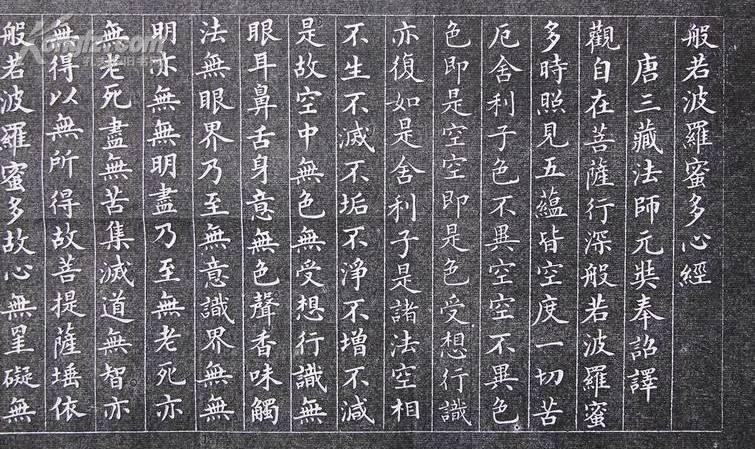 般若波羅蜜多心經
唐三藏法師元奘奉詔譯
觀自在菩薩行深般若波羅蜜
多時照見五蘊皆空度一切苦
厄舍利子色不異空空不異色
色即是空空即是色受想行識
亦復如是舍利子是諸法空相
不生不滅不垢不淨不增不減
是故空中無色無受想行識無
眼耳鼻舌身意無色聲香味觸
法無眼界乃至無意識界無無
明亦無無明盡乃至無老死亦
無老死盡無苦集滅道無智亦
無得以無所得故菩提薩埵依
般若波羅蜜多故心無罣礙無